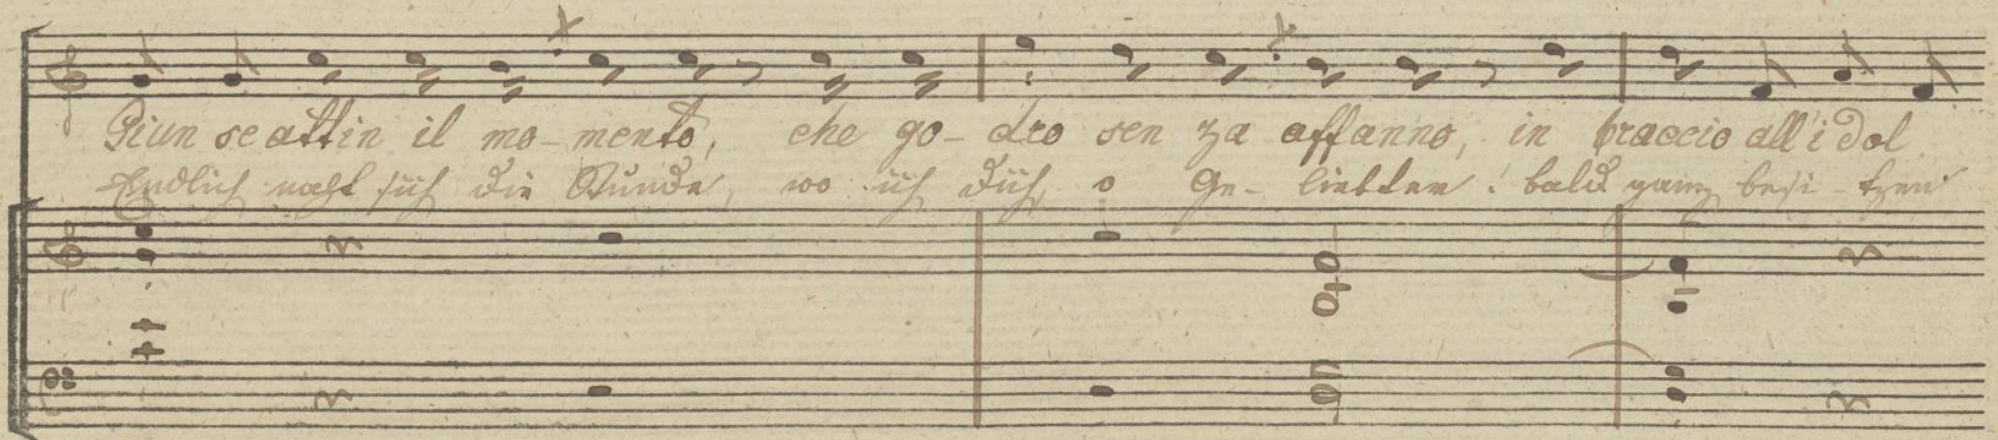 Giun se attin il mo- mento, che go- dro sen za affanno, in braccio all' i dol
Endlich naht sich die Stunde, wo ich dich, o Ge- liebter! bald ganz besi- tzen